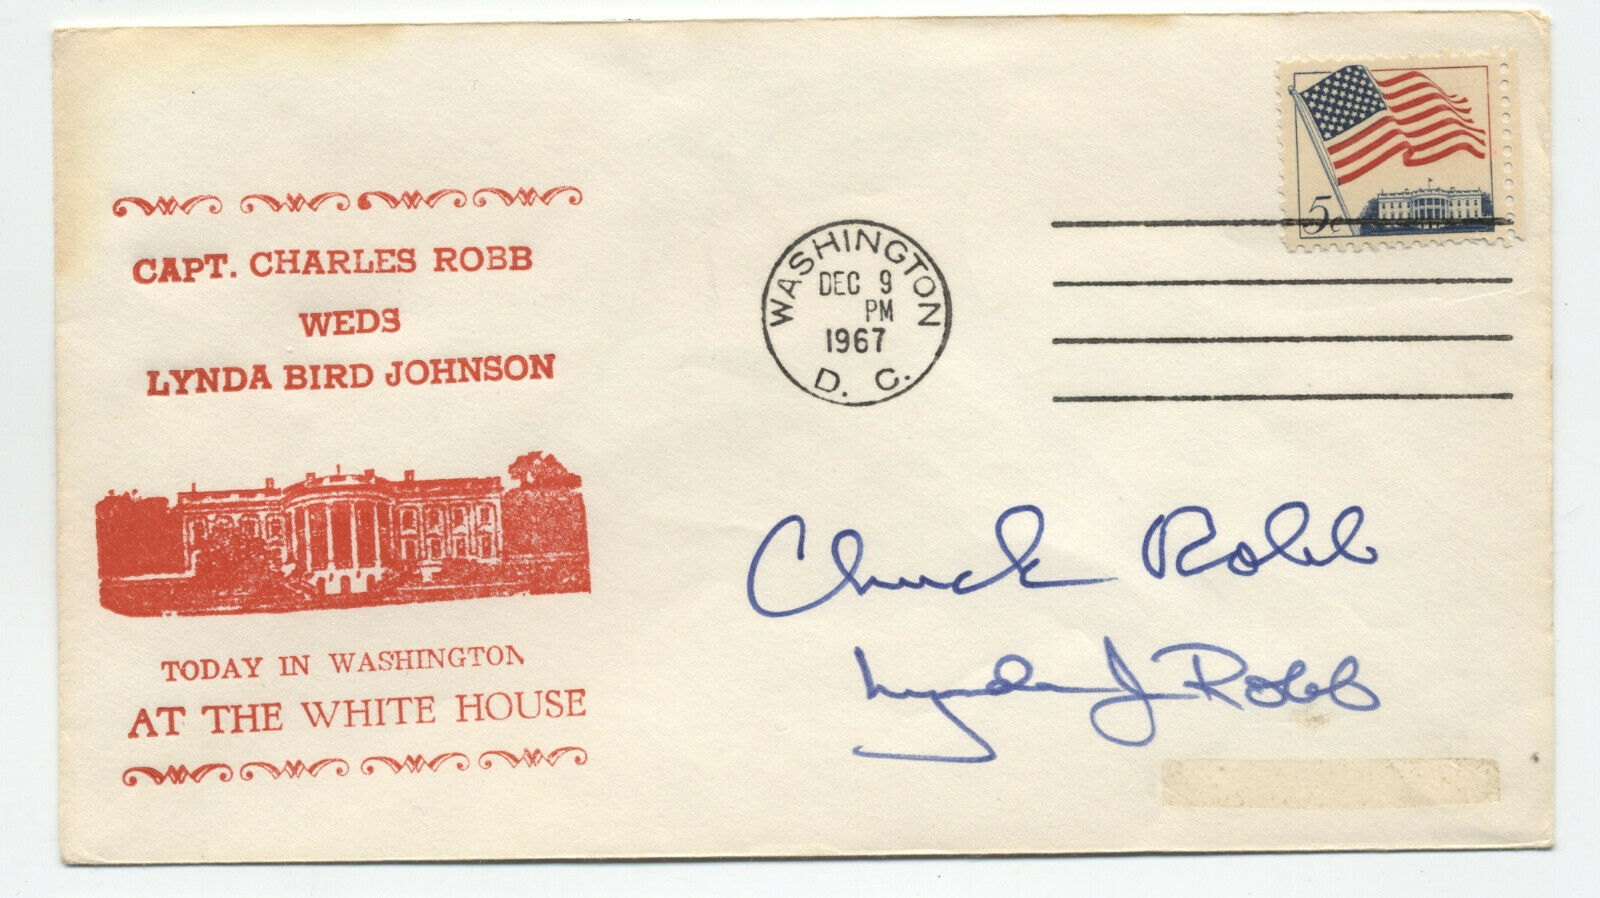 CAPT. CHARLES ROBB
WEDS
LYNDA BIRD JOHNSON
TODAY IN WASHINGTON
AT THE WHITE HOUSE
WASHINGTON
DEC 9
PM
1967
D. C.
5c
Chuck Robb
Lynda J Robb